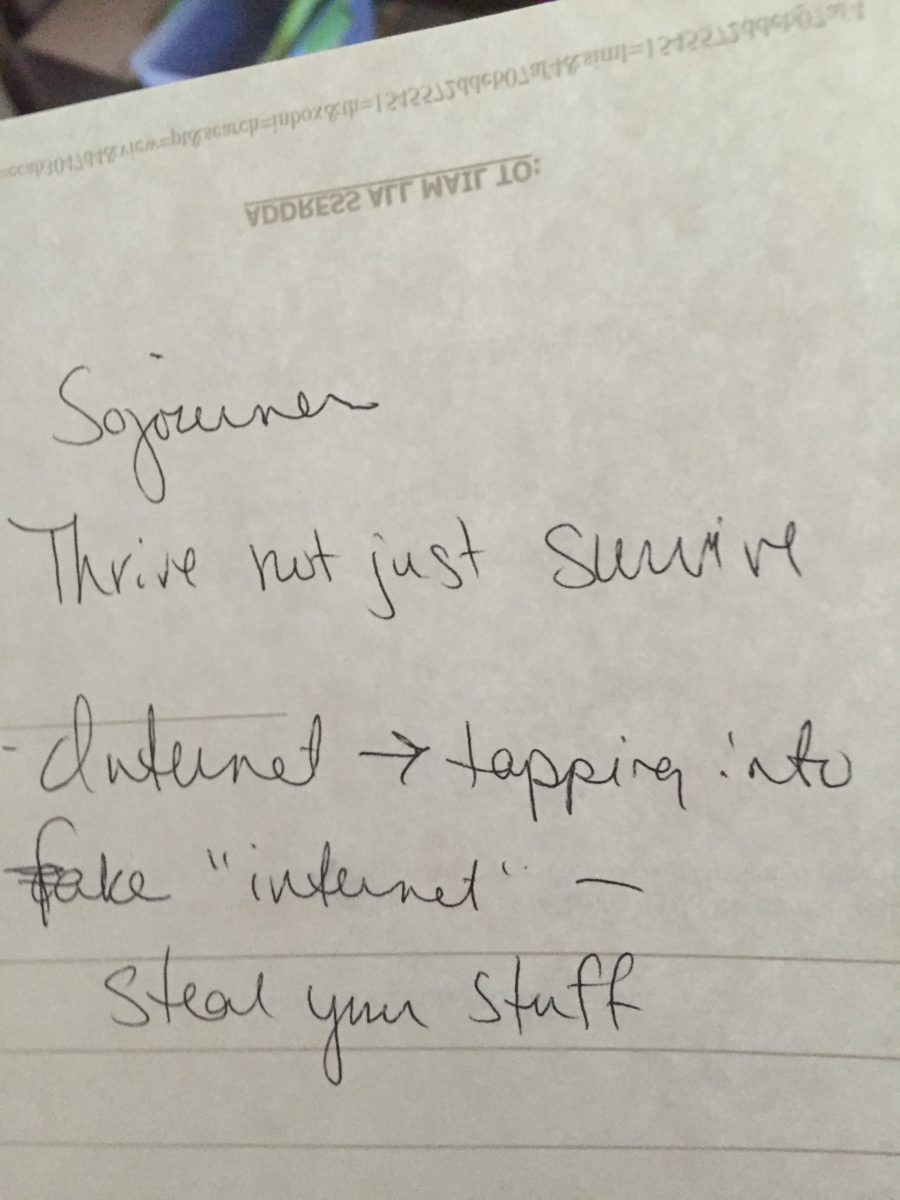 =ccab3047d4&view=pt&search=inbox&th=1545572ddeb07af4&siml=1545572ddeb07af4
ADDRESS ALL MAIL TO:
Sojourner
Thrive not just survive
- Internet → tapping into
fake "internet" —
steal your stuff